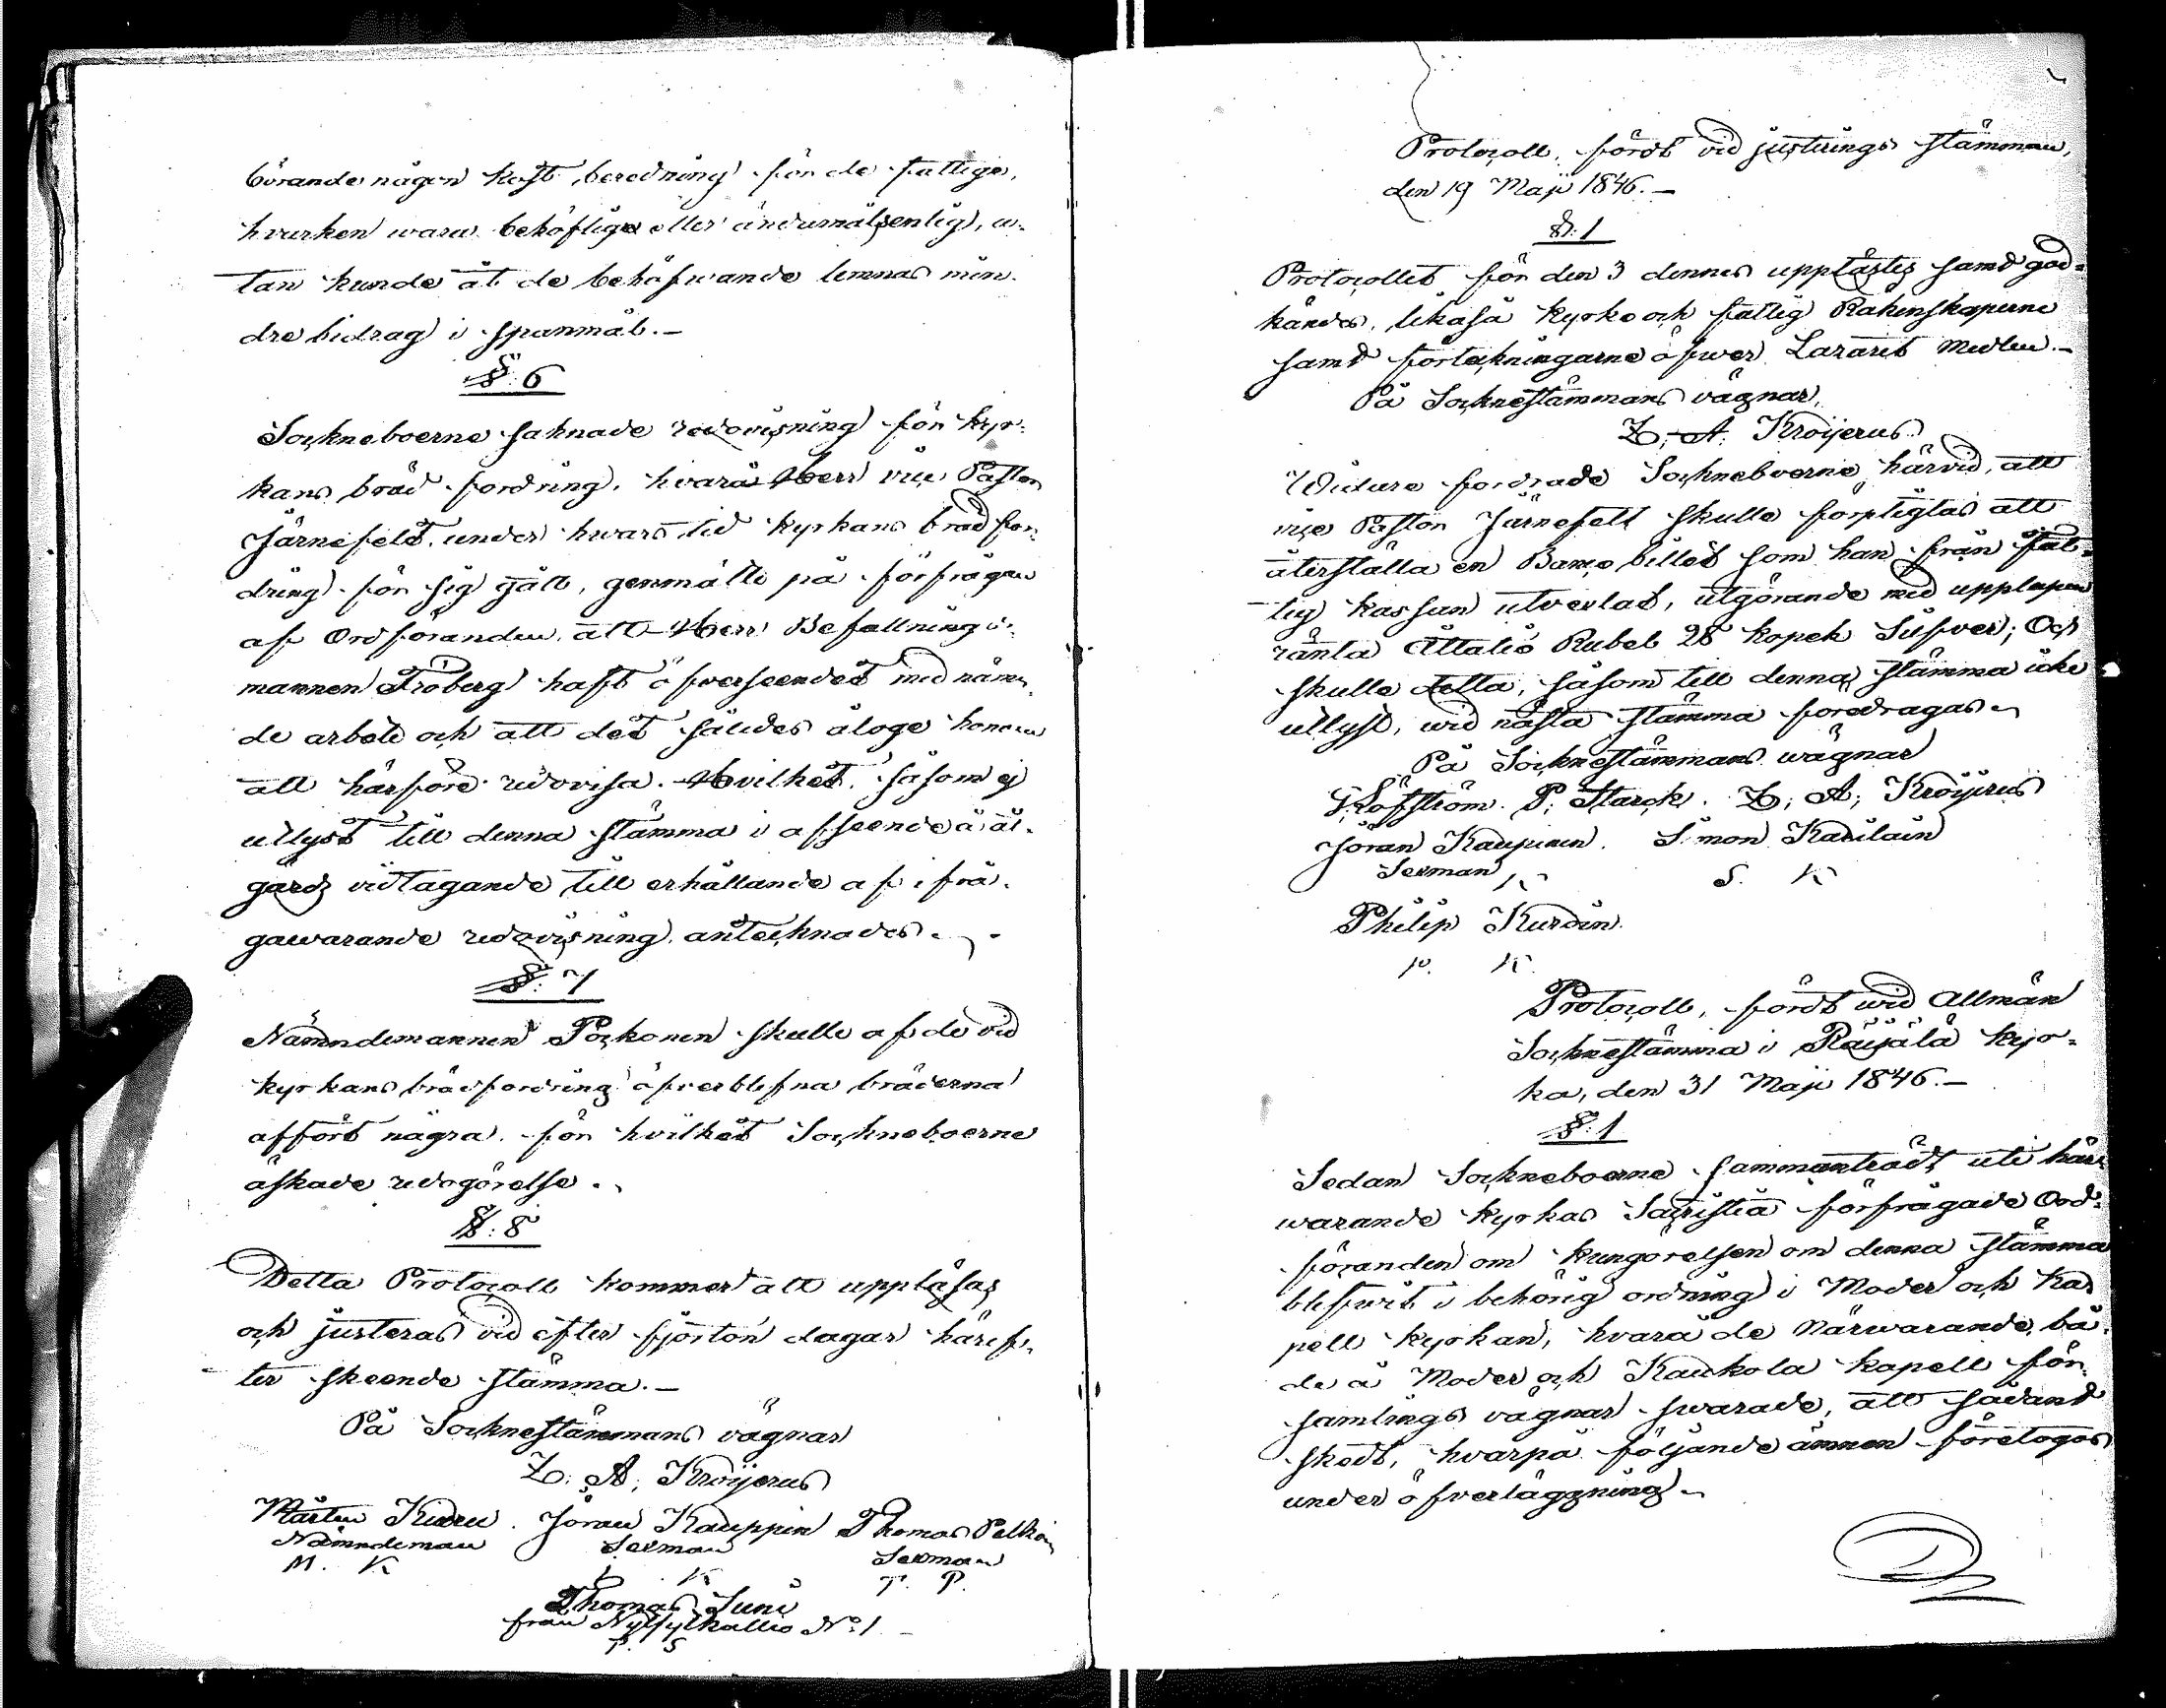 börande någon kost beredning för de fattige,
hvarken wara behöfligt eller ändamålsenlig, u-
tan kunde åt de behöfwande lemnas min-
dre bidrag i spanmål.—
§: 6
Sockneboerne saknade redovisning för kyr-
kans bräd fordring, hvarå Herr vice Pastor
Järnefelt, under hwars tid kyrkans brädfor-
dring för sig gått, genmälte på förfrågan
af Ordföranden, att Herr Befallnings-
mannen Fröberg haft öfverseendet med näm-
de arbete och att det således åloge honom
att härföre redovisa. Hvilket, såsom ej
utlyst till denna stämma i afseende å åt-
gärds vidtagande till erhållande af ifrå-
gawarande redovisning antecknades.
§: 7
Nämndemannen Pockonen skulle af de vid
kyrkans brädfordring öfverblefna bräderna
affört några, för hvilket Sockneboerne
äskade redogörelse.
§: 8
Detta Protocoll kommer att uppläsas
och justeras vid efter fjorton dagar häref-
ter skeende stämma.—
På Socknestämmans vägnar
Z: A: Kröijerus
Mårten Kiuru. Jöran Kauppin Thomas Pelkin
Nämndeman Sexman Sexman
M. K J. K T. P.
Thomas Suni
från Nylyikallio No: 1
T. S
Protocoll, fördt vid justerings stämman,
den 19 Maji 1846.—
§: 1
Protocollet för den 3 dennes upplästes samt god-
kändes, likaså kyrko och fattig Räkenskaperne
samt förteckningarne öfwer Lazarets medlen.—
På Socknestämmans vägnar,
Z: A: Kröijerus
Widare fordrade Sockneboerne härvid, att
vice Pastor Järnefelt skulle förpligtas att
återställa en Banco billet som han från fat-
tig kassan utvexlat, utgörande med upplupen
ränta Åttatio Rubel 28 kopek Silfver; Och
skulle detta, såsom till denna stämma icke
utlyst, wid nästa stämma foredragas.
På Socknestämmans wägnar
J. Löfström. P: Starck. Z: A: Kröijerus
Jöran Kaupinen. Simon Karilain
Sexman K S. K
Philip Kurdin.
P. K.
Protocoll, fördt wid Allmän
Socknestämma i Räisälä kyr-
ka, den 31 Maji 1846.—
§: 1
Sedan Sockneboerne sammanträdt uti här-
warande kyrkas Sacristia förfrågade Ord-
föranden om kungörelsen om denna stämma
blefwit i behörig ordning i Moder och Ka-
pell kyrkan, hvarå de närwarande, bå-
de å Moder och Kaukola kapell för-
samlings vägnar swarade, att sådant
skedt, hvarpå följande ämnen företogos
under öfverläggning.